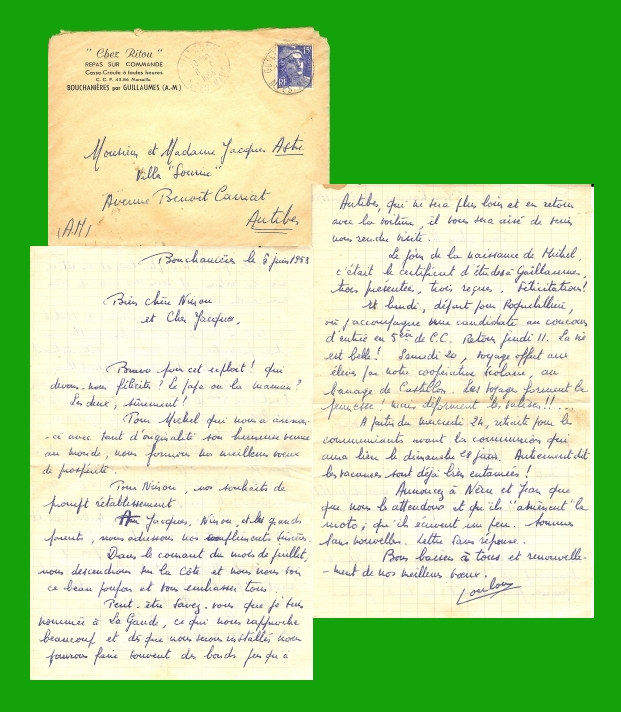 "Chez Ritou"
REPAS SUR COMMANDE
Casse-Croute à toutes heures
C. C. P. 43.86 Marseille
BOUCHANIÈRES par GUILLAUMES (A.-M.)
15F
RF
Monsieur et Madame Jacques Astre
Villa "Sourire"
Avenue Benoit Carnat
Antibes
(A.M)
Bouchanières le 6 juin 1953
Bien chère Ninou
et Cher Jacques,
Bravo pour cet exploit! qui
devons-nous féliciter? Le papa ou la maman?
Les deux, sûrement!
Pour Michel qui nous a annon-
-cé avec tant d'originalité son heureuse venue
au monde, nous formons nos meilleurs voeux
de prospérité.
Pour Ninou, nos souhaits de
prompt rétablissement.
Jacques, Ninou, et les grands
parents, nous adressons nos compliments sincères.
Dans le courant du mois de juillet,
nous descendrons sur la Côte et nous irons voir
ce beau poupon et vous embrasser tous.
Peut-être savez-vous que je suis
nommée à La Gaude, ce qui nous rapproche
beaucoup et dès que nous serons installés nous
pourrons faire souvent des bonds jusqu'à
Antibes, qui ne sera plus loin et en retour
avec la voiture, il vous sera aisé de venir
nous rendre visite.
Le jour de la naissance de Michel,
c'était le certificat d'études à Guillaumes,
trois présentés, trois reçus. Félicitations!
Et lundi, départ pour Roquebillière,
où j'accompagne une candidate au concours
d'entrée en 5ème de C.C. Retour jeudi 11. La vie
est belle! Samedi 20, voyage offert aux
élèves par notre coopérative scolaire, au
barrage de Castillon. Les voyages forment la
jeunesse! mais déforment les valises!!...
A partir du mercredi 24, retraite pour les
communiants avant la communion qui
aura lieu le dimanche 28 juin. Autrement dit
les vacances sont déjà bien entamées!
Annoncez à Néné et Jean que
que nous les attendons et qu'ils "amènent" la
moto; qu'ils écrivent un peu. Sommes
sans nouvelles. Lettre sans réponse.
Bons baisers à tous et renouvelle-
-ment de nos meilleurs voeux.
Loulou